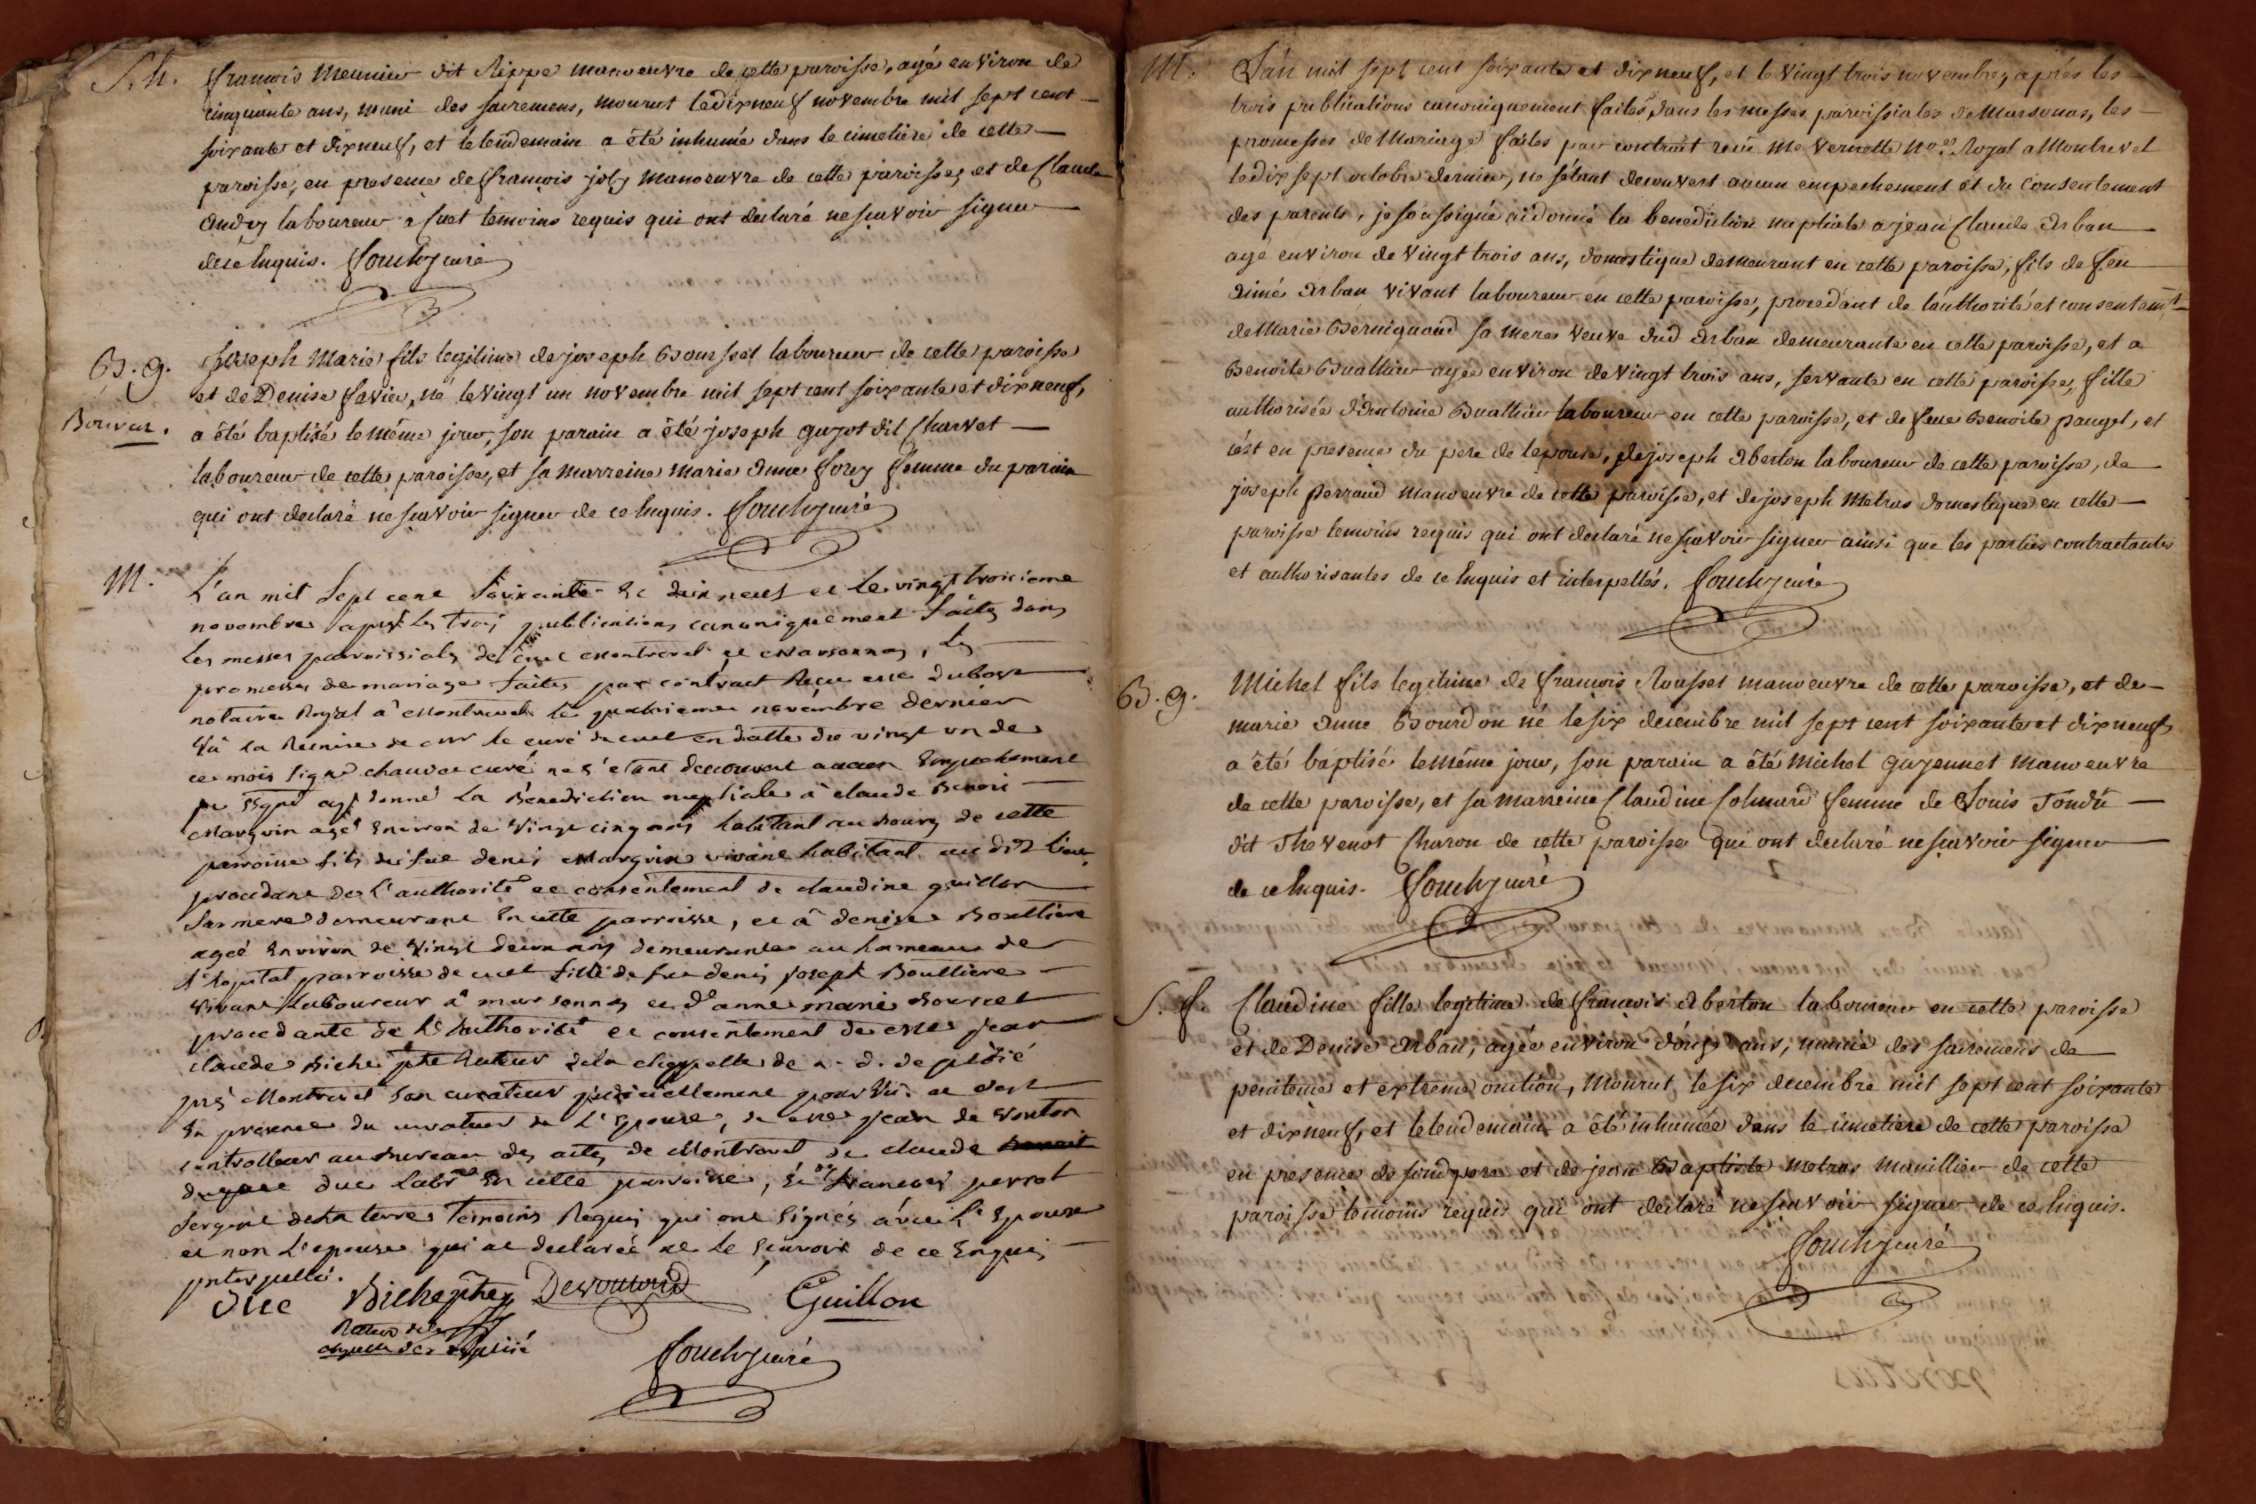 S. h. françois Meunier dit Rippe manoeuvre de cette paroisse, agé environ de
cinquante ans, muni des sacremens, mourut le dixneuf novembre mil sept cent
soixante et dixneuf, et le lendemain a été inhumé dans le cimetiere de cette
paroisse, en presence de françois joly manoeuvre de cette paroisse, et de Claude
laboureur a Cuet temoins requis qui ont declaré ne scavoir signer
de ce Enquis. curé
B. g. joseph Marie fils legitime de joseph Bousset laboureur de cette paroisse
et de Denise favier, né le vingt un novembre mil sept cent soixante et dixneuf,
a été baptisé le même jour, son parain a été joseph guyot dit Charvet
laboureur de cette paroisse, et sa marreine marie anne forey femme du parain
qui ont declaré ne scavoir signer de ce Enquis. curé
M. L'an mil sept cent soixante et dix neuf et le vingt troisieme
novembre après les trois publications canoniquement faites dans
les messes paroissiales de Cuet Montrevel et Marsonnas, les
promesses de mariage faites par contract Recu me Dubost
notaire Royal a Montrevel le quatrieme novembre dernier
Vû la Remise de mr le curé de cuet en datte du vingt un de
ce mois signé curé ne s'etant decouvert aucun Empechement
donné la Bénédiction nuptiale à claude Benoit
Marguin agé Environ de Vingt cinq ans habitant au bourg de cette
parroisse fils de feu denis Marguin vivant habitant au dit lieu
procedant de l'authorité et consentement de claudine guillon
sa mere demeurant En cette parroisse, et à denise Boullier
agée Environ de Vingt deux ans demeurante au hameau de
l'hopital parroisse de cuet fille de feu denis joseph Boulliere
vivant laboureur à marsonnas et d'anne marie
procedante de l'authorité et consentement de me jean
claude Biche ptre Recteur de la chappelle de n. d. de pitié
prés Montrevel son curateur pourvû et c'est
En presence du curateur de l'Epouse, de me jean de
controlleur au bureau des actes de Montrevel de claude
duc labr En cette parroisse, et françois perrot
sergent de la terre Temoins Requis qui ont signés avec l'Epoux
et non l'epouse qui a declarée ne le scavoir de ce Enquis
interpellé.
duc Biche ptre Guillon
Recteur de la
chapelle de pitié
curé
M. L'an mil sept cent soixante et dixneuf, et le vingt trois novembre, après les
trois publications canoniquement faites dans les messes paroissiales de Marsonas, les
promesses de Mariage faites par contract recu me Vernette nore Royal a Montrevel
le dix sept octobre dernier, ne s'étant decouvert aucun empechement et du consentement
des parents, je soussigné ai donné la benediction nuptiale a jean Claude Arban
agé environ de vingt trois ans, domestique demeurant en cette paroisse, fils de feu
aimé Arban vivant laboureur en cette paroisse, procedant de l'authorité et consentemt
de Marie Bernigaud sa mere veuve dud Arban demeurante en cette paroisse, et a
Benoite Buathier agée environ de vingt trois ans, servante en cette paroisse, fille
authorisée d'Antoine Buathier laboureur en cette paroisse, et de feue Benoite pauget, et
c'est en presence du pere de l'epouse, de joseph Aberton laboureur de cette paroisse, de
joseph perraud manoeuvre de cette paroisse, et de joseph Metras domestique en cette
paroisse temoins requis qui ont declaré ne scavoir signer ainsi que les parties contractantes
et authorisantes de ce Enquis et interpellés. curé
B. g. Michel fils legitime de françois Rousset manoeuvre de cette paroisse, et de
marie anne Bourdon né le six decembre mil sept cent soixante et dixneuf
a été baptisé le même jour, son parain a été Michel guyennet manoeuvre
de cette paroisse, et sa marreine Claudine Colmard femme de Louis Tondû
dit Thevenot Charon de cette paroisse qui ont declaré ne scavoir signer
de ce Enquis. curé
S. f. Claudine fille legitime de françois Aberton laboureur en cette paroisse
et de Denise Arban, agée environ d'onze ans, munie des sacremens de
penitence et extreme onction, mourut le six decembre mil sept cent soixante
et dixneuf, et le lendemain a été inhumée dans le cimetiere de cette paroisse
en presence de sond pere et de jean Baptiste metras manillier de cette
paroisse temoins requis qui ont declaré ne scavoir signer de ce Enquis.
curé